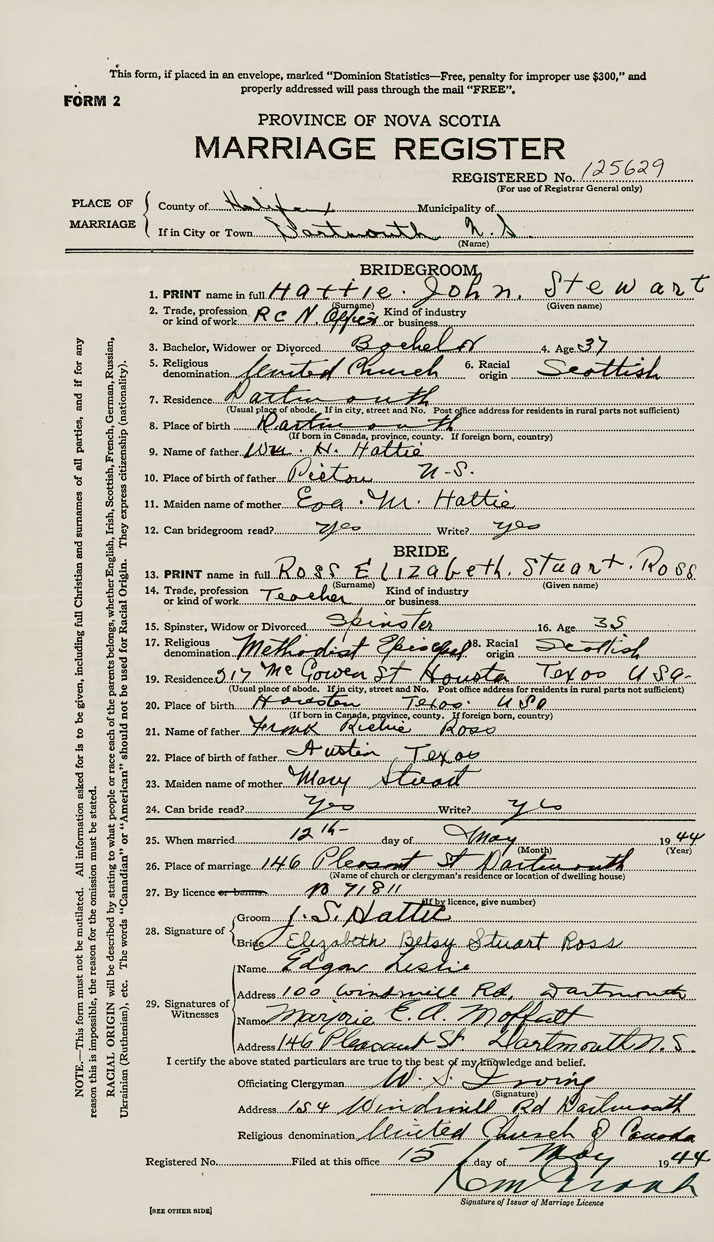 This form, if placed in an envelope, marked "Dominion Statistics—Free, penalty for improper use $300," and
properly addressed will pass through the mail "FREE".
FORM 2
PROVINCE OF NOVA SCOTIA
MARRIAGE REGISTER
REGISTERED No. 125629
(For use of Registrar General only)
PLACE OF MARRIAGE
County of Halifax Municipality of
If in City or Town Dartmouth N.S.
(Name)
BRIDEGROOM
1. PRINT name in full Hattie. John. Stewart
(Surname) (Given name)
2. Trade, profession or kind of work R C N. Officer Kind of industry or business
3. Bachelor, Widower or Divorced Bachelor 4. Age 37
5. Religious denomination United Church 6. Racial origin Scottish
7. Residence Dartmouth
(Usual place of abode. If in city, street and No. Post office address for residents in rural parts not sufficient)
8. Place of birth Dartmouth
(If born in Canada, province, county. If foreign born, country)
9. Name of father Wm. H. Hattie
10. Place of birth of father Pictou N-S.
11. Maiden name of mother Eva. M. Hattie
12. Can bridegroom read? yes Write? yes
BRIDE
13. PRINT name in full Ross Elizabeth. Stuart. Ross
(Surname) (Given name)
14. Trade, profession or kind of work Teacher Kind of industry or business
15. Spinster, Widow or Divorced Spinster 16. Age 35
17. Religious denomination Methodist Episcopal 18. Racial origin Scottish
19. Residence 317 McGowen St Houston Texas USA-
(Usual place of abode. If in city, street and No. Post office address for residents in rural parts not sufficient)
20. Place of birth Houston Texas. USA
(If born in Canada, province, county. If foreign born, country)
21. Name of father Frank Richie Ross
22. Place of birth of father Austin Texas
23. Maiden name of mother Mary Stuart
24. Can bride read? Yes Write? yes
25. When married 12th day of May 1944
(Month) (Year)
26. Place of marriage 146 Pleasant St Dartmouth
(Name of church or clergyman's residence or location of dwelling house)
27. By licence or banns. No 71811
(If by licence, give number)
28. Signature of
Groom J. S. Hattie
Bride Elizabeth Betsy Stuart Ross
29. Signatures of Witnesses
Name Edgar Leslie
Address 100 Windmill Rd, Dartmouth
Name Marjorie E. A. Moffatt
Address 146 Pleasant St Dartmouth N.S.
I certify the above stated particulars are true to the best of my knowledge and belief.
Officiating Clergyman W. S. Irving
(Signature)
Address 154 Windmill Rd Dartmouth
Religious denomination United Church of Canada
Registered No. Filed at this office 15 day of May 1944
Signature of Issuer of Marriage Licence
[SEE OTHER SIDE]
NOTE.—This form must not be mutilated. All information asked for is to be given, including full Christian and surnames of all parties, and if for any
reason this is impossible, the reason for the omission must be stated.
RACIAL ORIGIN will be described by stating to what people or race each of the parents belongs, whether English, Irish, Scottish, French, German, Russian,
Ukrainian (Ruthenian), etc. The words "Canadian" or "American" should not be used for Racial Origin. They express citizenship (nationality).